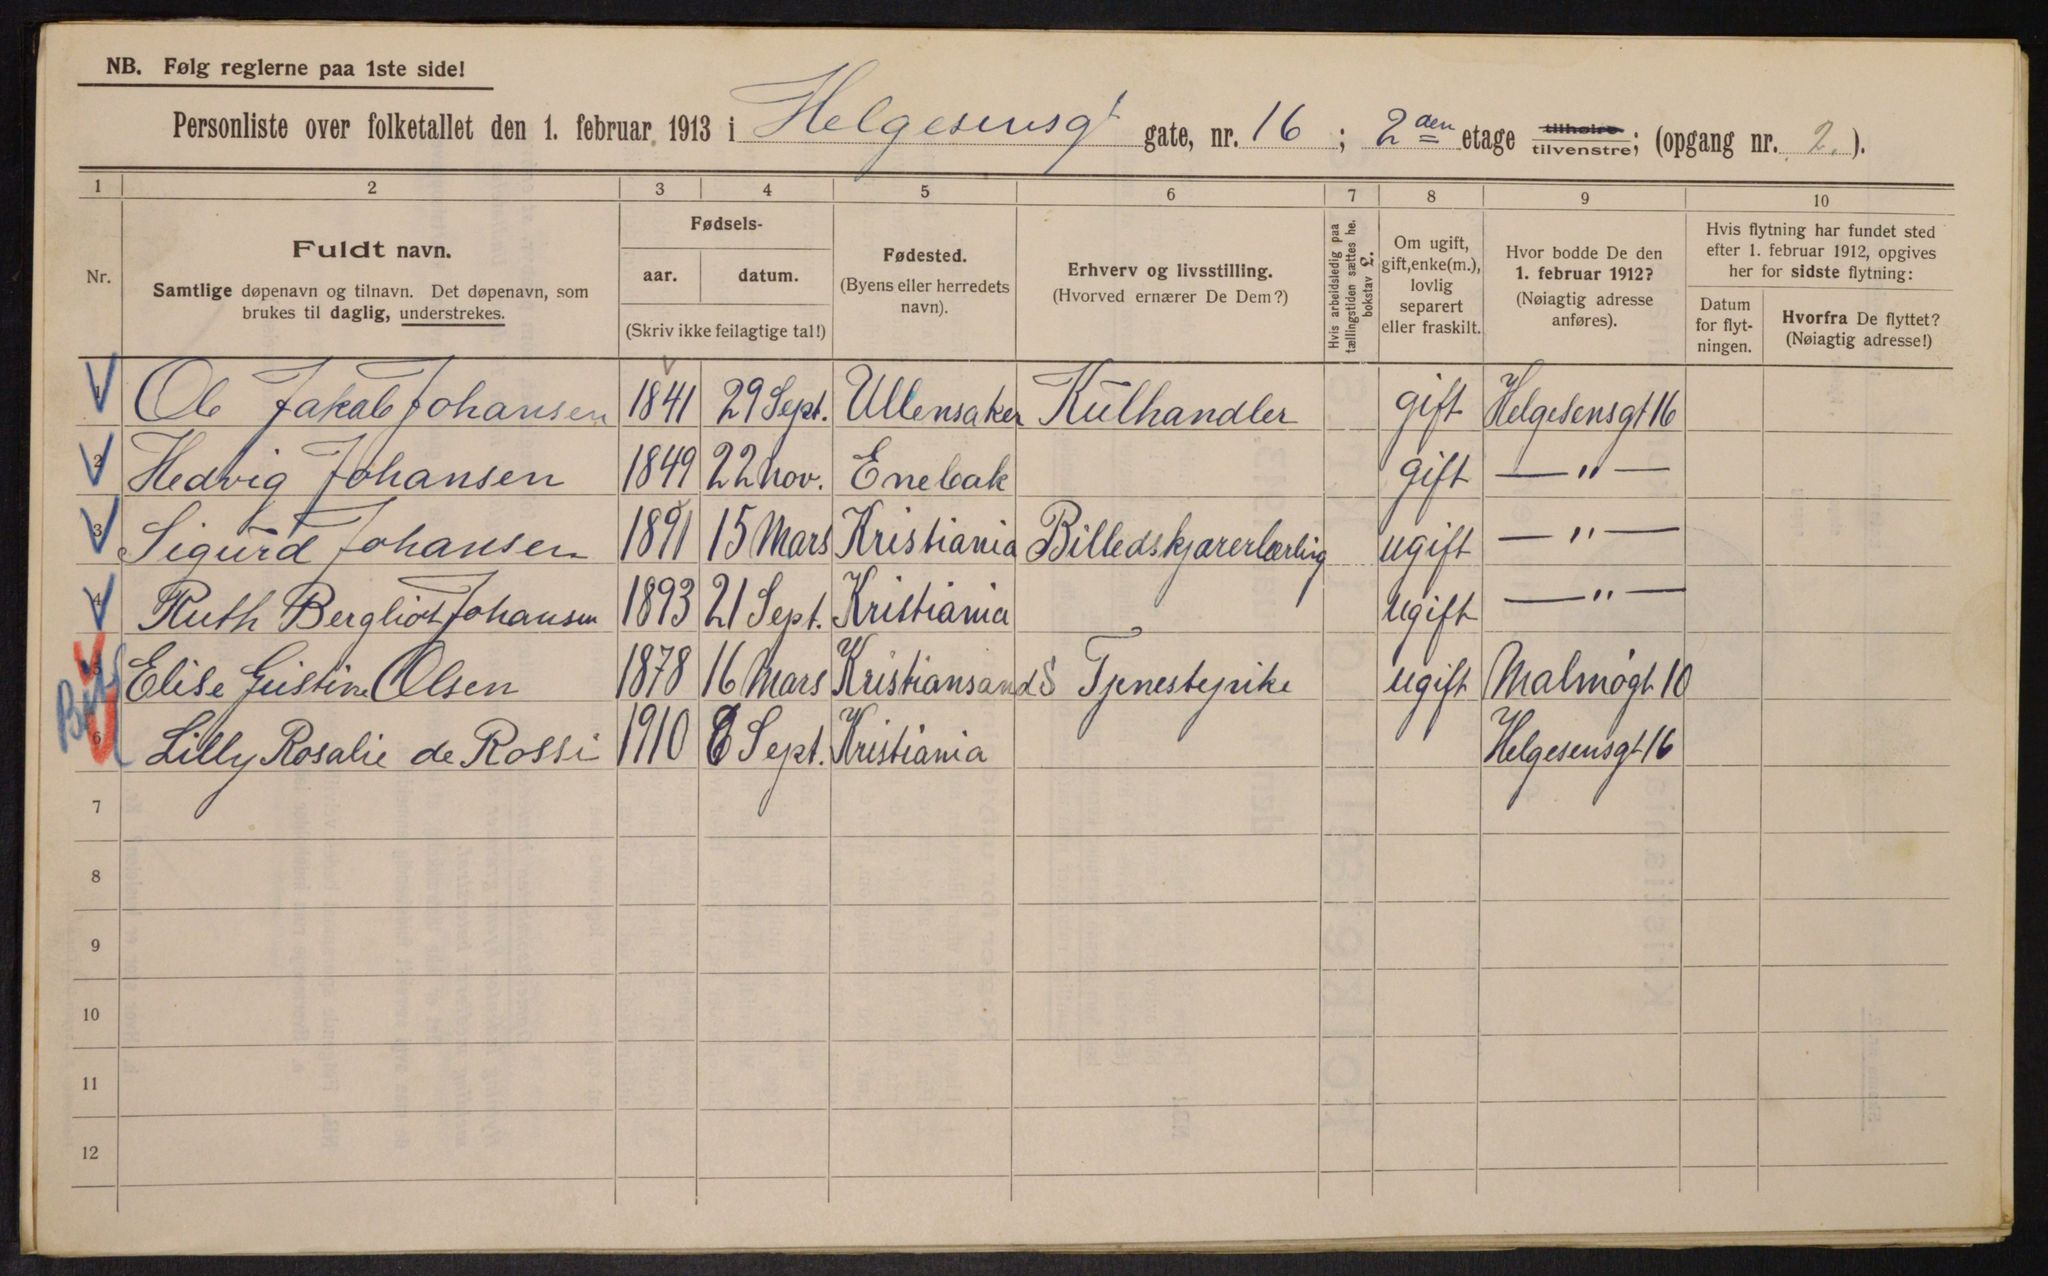 NB. Følg reglerne paa 1ste side!
Personliste over folketallet den 1. februar 1913 i Helgesensgt gate, nr. 16 ; 2den etage tilhøire tilvenstre; (opgang nr. 2.).
1 2 3 4 5 6 7 8 9 10
Nr.
Fuldt navn.
Samtlige døpenavn og tilnavn. Det døpenavn, som
brukes til daglig, understrekes.
Fødsels-
aar. datum.
(Skriv ikke feilagtige tal!)
Fødested.
(Byens eller herredets
navn).
Erhverv og livsstilling.
(Hvorved ernærer De Dem?)
Hvis arbeidsledig paa
tællingstiden sættes her
bokstav L.
Om ugift,
gift, enke(m.),
lovlig
separert
eller fraskilt.
Hvor bodde De den
1. februar 1912?
(Nøiagtig adresse
anføres).
Hvis flytning har fundet sted
efter 1. februar 1912, opgives
her for sidste flytning:
Datum
for flyt-
ningen.
Hvorfra De flyttet?
(Nøiagtig adresse!)
1 Ole Jakob Johansen 1841 29 Sept. Ullensaker Kulhandler gift Helgesensgt 16
2 Hedvig Johansen 1849 22 nov. Enebak gift — " —
3 Sigurd Johansen 1891 15 Mars Kristiania Billedskjærerlærling ugift — " —
4 Ruth Bergliot Johansen 1893 21 Sept. Kristiania ugift — " —
5 Elise Gustine Olsen 1878 16 Mars Kristiansand S Tjenestepike ugift Malmøgt 10
6 Lilly Rosalie de Rossi 1910 6 Sept. Kristiania Helgesensgt 16
7
8
9
10
11
12